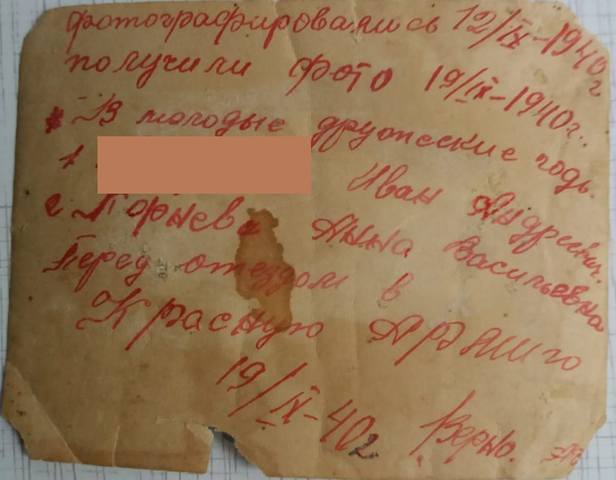 фотографировались 12/IX-1940г
получили фото 19/IX-1940г.
В молодые дружеские годы.
1 Иван Андреяч.
2. Горнева Анна Васильевна
Перед отездом в
Красную Армию
19/IX-40г Верно.